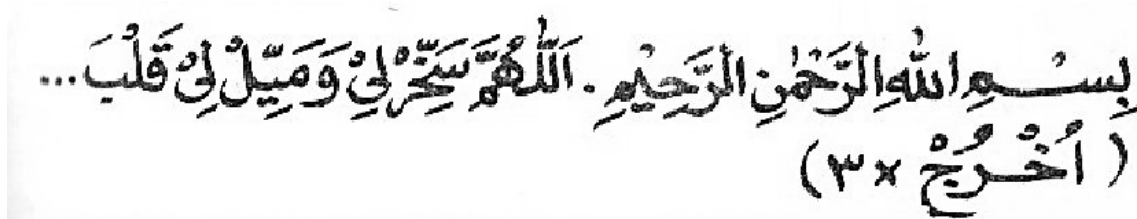 بِسْــمِ اللهِ الرَّحْمٰنِ الرَّحِيْمِ. اَللّٰهُمَّ سَخِّرْ لِيْ وَمَيِّلْ لِيْ قَلْبَ...
( اُخْــرُجْ × ٣)